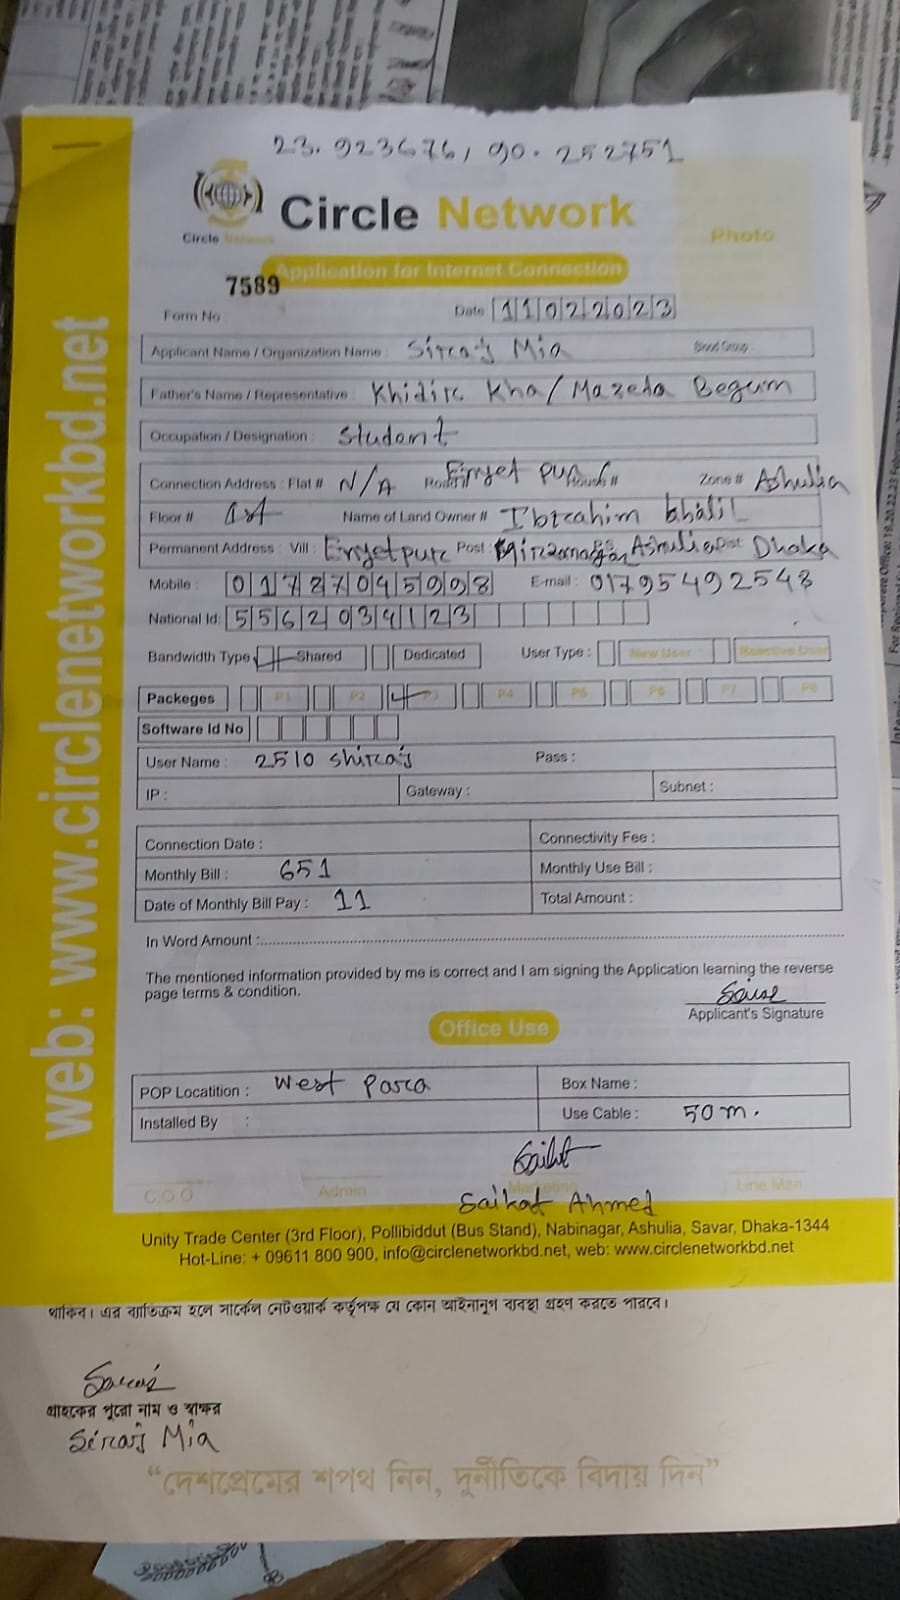 23.923676, 90.252751
Circle Network
Circle Network
Photo
Application for Internet Connection
7589
Form No
Date 11022023
Applicant Name / Organization Name : Sirca's Mia Blood Group
Father's Name / Representative : Khidirc Kha / Mazeda Begum
Occupation / Designation : Student
Connection Address : Flat # N/A Zone # Ashulia
Floor # 1st Name of Land Owner # Ibrcahim khalil
Permanent Address : Vill : Post : Ashulia Dist Dhaka
Mobile : 01787045998 E-mail : 01795492543
National Id: 5562039123
Bandwidth Type Shared Dedicated User Type : New User Reactive User
Packeges P1 P2 P3 P4 P5 P6 P7 P8
Software Id No
User Name : 2510 shirca's Pass :
IP : Gateway : Subnet :
Connection Date : Connectivity Fee :
Monthly Bill : 651 Monthly Use Bill :
Date of Monthly Bill Pay : 11 Total Amount :
In Word Amount :
The mentioned information provided by me is correct and I am signing the Application learning the reverse
page terms & condition.
Applicant's Signature
Office Use
POP Locatition : West Parca Box Name :
Installed By : Use Cable : 50 m.
C.O.O Admin Marketing Line Man
Saikat Ahmed
Unity Trade Center (3rd Floor), Pollibiddut (Bus Stand), Nabinagar, Ashulia, Savar, Dhaka-1344
Hot-Line: + 09611 800 900, info@circlenetworkbd.net, web: www.circlenetworkbd.net
web: www.circlenetworkbd.net
থাকিব। এর ব্যতিক্রম হলে সার্কেল নেটওয়ার্ক কর্তৃপক্ষ যে কোন আইনানুগ ব্যবস্থা গ্রহণ করতে পারবে।
গ্রাহকের পুরো নাম ও স্বাক্ষর
Sircaj Mia
“দেশপ্রেমের শপথ নিন, দুর্নীতিকে বিদায় দিন”